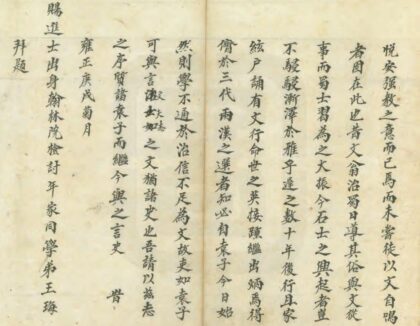 悅安強教之意而已焉而未嘗徒以文自鳴
者固在此也昔文翁治蜀日導其俗與文從
事而蜀士習為之大振今石士之興起者豈
不駸駸漸澤於雅乎迨之數十年後行且家
絃戶誦有文行命世之英接踵繼出炳焉得
儕於三代兩漢之選者知必自袁子今日始
然則學不通於治信不足為文故吏如袁子
可與言之文猶諸史也吾請以茲志
之序質諸袁子而繼今與之言史 旹
雍正庚戌菊月
賜進士出身翰林院檢討年家同學弟王
拜題